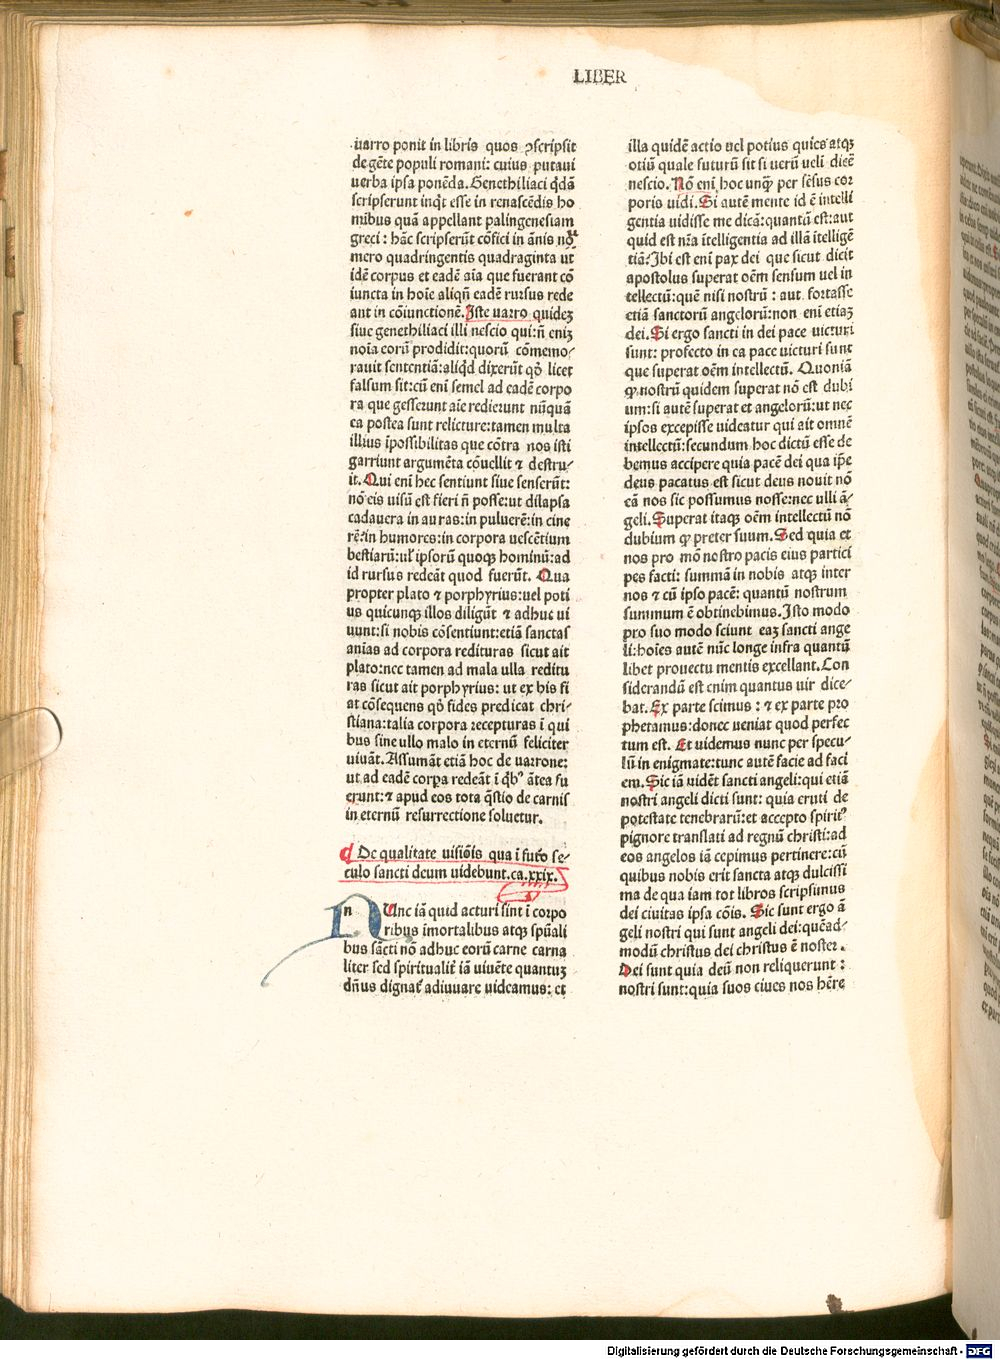 LIBER
uarro ponit in libris quos ꝯscripsit
de gēte populi romani: cuius putaui
uerba ipsa ponēda. Genethiliaci qdā
scripserunt inqt esse in renascēdis ho
mibus quā appellant palingenesiam
greci: hāc scripserūt cōfici in ānis nu
mero quadringentis quadraginta ut
idē corpus et eadē aīa que fuerant cō
iuncta in hoīe aliqn̄ eadē rursus rede
ant in cōiunctionē. Iste uarro quideꝫ
siue genethiliaci illi nescio qui: n̄ eniꝫ
noīa eorū prodidit: quorū cōmemo/
rauit sententiā: aliqd dixerūt qđ licet
falsum sit: cū enī semel ad eadē corpo
ra que gesserunt aīe redierunt nūquā
ea postea sunt relicture: tamen multa
illius īpossibilitas que cōtra nos isti
garriunt argumēta cōuellit ⁊ destru/
it. Qui enī hec sentiunt siue senserūt:
nō eis uisū est fieri n̄ posse: ut dilapsa
cadauera in auras: in puluerē: in cine
rē: in humores: in corpora uescētium
bestiarū: ul̓ ipsorū quoqꝫ hominū: ad
id rursus redeāt quod fuerūt. Qua
propter plato ⁊ porphyrius: uel poti
us quicunqꝫ illos diligūt ⁊ adhuc ui
uunt: si nobis cōsentiunt: etiā sanctas
anīas ad corpora redituras sicut ait
plato: nec tamen ad mala ulla reditu
ras sicut ait porphyrius: ut ex his fi
at cōsequens qđ fides predicat chri/
stiana: talia corpora recepturas ī qui
bus sine ullo malo in eternū feliciter
uiuāt. Assumāt etiā hoc de uarrone:
ut ad eadē corpa redeāt ī qbꝰ ātea fu
erunt: ⁊ apud eos tota qstio de carnis
in eternū resurrectione soluetur.
De qualitate uisiōis qua ī futo se/
culo sancti deum uidebunt. ca. xxix.
nUnc iā quid acturi sint ī corpo
ribus īmortalibus atqꝫ spūali
bus sācti nō adhuc eorū carne carna
liter sed spiritualit̄ iā uiuēte quantuꝫ
dn̄us dignat̄ adiuuare uideamus: et
illa quidē actio uel potius quies atqꝫ
otiū quale futurū sit si uerū ueli dicē
nescio. Nō enī hoc unqꝫ per sēsus cor
poris uidi. Si autē mente id ē intelli
gentia uidisse me dicā: quantū est: aut
quid est nr̄a ītelligentia ad illā ītelligē
tiā? Ibi est enī pax dei que sicut dicit
apostolus superat oēm sensum uel in
tellectū: quē nisi nostrū: aut fortasse
etiā sanctorū angelorū: non enī etiaꝫ
dei. Si ergo sancti in dei pace uicturi
sunt: profecto in ea pace uicturi sunt
que superat oēm intellectū. Quoniā
qꝫ nostrū quidem superat nō est dubi
um: si autē superat et angelorū: ut nec
ipsos excepisse uideatur qui ait omnē
intellectū: secundum hoc dictū esse de
bemus accipere quia pacē dei qua ip̄e
deus pacatus est sicut deus nouit nō
eā nos sic possumus nosse: nec ulli ā/
geli. Superat itaqꝫ oēm intellectū nō
dubium qꝫ preter suum. Sed quia et
nos pro mō nostro pacis eius partici
pes facti: summā in nobis atqꝫ inter
nos ⁊ cū ipso pacē: quantū nostrum
summum ē obtinebimus. Isto modo
pro suo modo sciunt eaꝫ sancti ange
li: hoīes autē nūc longe infra quantū
libet prouectu mentis excellant. Con
siderandū est enim quantus uir dice/
bat. Ex parte scimus: ⁊ ex parte pro
phetamus: donec ueniat quod perfec
tum est. Et uidemus nunc per specu/
lū in enigmate: tunc autē facie ad faci
em. Sic iā uidēt sancti angeli: qui etiā
nostri angeli dicti sunt: quia eruti de
potestate tenebrarū: et accepto spiritꝰ
pignore translati ad regnū christi: ad
eos angelos iā cepimus pertinere: cū
quibus nobis erit sancta atqꝫ dulcissi
ma de qua iam tot libros scripsimus
dei ciuitas ipsa cōis. Sic sunt ergo ā
geli nostri qui sunt angeli dei: quēad/
modū christus dei christus ē noster.
Dei sunt quia deū non reliquerunt:
nostri sunt: quia suos ciues nos hēre
Digitalisierung gefördert durch die Deutsche Forschungsgemeinschaft - DFG